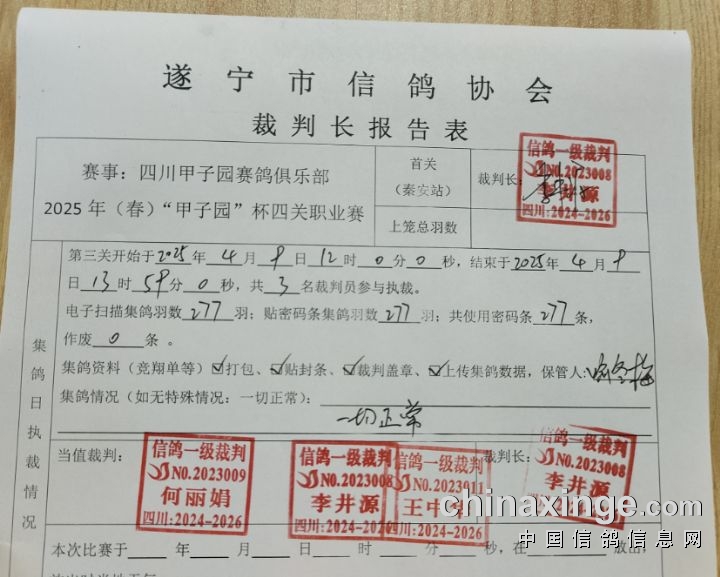 遂宁市信鸽协会
裁判长报告表
赛事：四川甲子园赛鸽俱乐部
2025年（春）“甲子园”杯四关职业赛
首关
（秦安站）
裁判长：
信鸽一级裁判
NO.2023008
李井源
四川：2024-2026
上笼总羽数
第三关开始于2025年4月9日12时0分0秒，结束于2025年4月9
日13时59分0秒，共3名裁判员参与执裁。
电子扫描集鸽羽数277羽；贴密码条集鸽羽数277羽；共使用密码条277条，
作废0条。
集鸽资料（竞翔单等）☑打包、☑贴封条、☑裁判盖章、☑上传集鸽数据，保管人：
集鸽情况（如无特殊情况：一切正常）：
一切正常
集鸽日执裁情况
当值裁判：
信鸽一级裁判
NO.2023009
何丽娟
四川：2024-2026
信鸽一级裁判
NO.2023008
李井源
四川：2024-2026
信鸽一级裁判
NO.2023011
四川：2024-2026
裁判长：
信鸽一级裁判
NO.2023008
李井源
本次比赛于 年 月 日 时 分 秒，在 放出，
chinaxinge.com
中国信鸽信息网